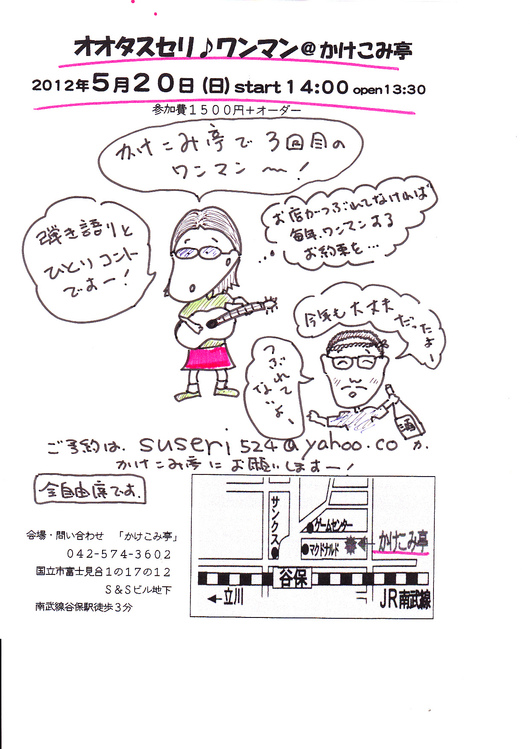 オオタスセリ♪ワンマン@かけこみ亭
2012年5月20日(日)start14:00 open13:30
参加費1500円+オーダー
かけこみ亭で3回目の
ワンマン〜!
弾き語りと
ひとりコント
ですー!
お店がつぶれてしなければ
毎年ワンマンする
お約束を…
今年も大丈夫
だったよー
つぶれて
ないよ、
酒
ご予約は、suseri524@yahoo.co か、
かけこみ亭にお願いしますー!
全自由席です。
会場・問い合わせ 「かけこみ亭」
042-574-3602
国立市富士見台1の17の12
S&Sビル地下
南武線谷保駅徒歩3分
サンクス
ゲームセンター
マクドナルド
かけこみ亭
谷保
←立川
JR南武線